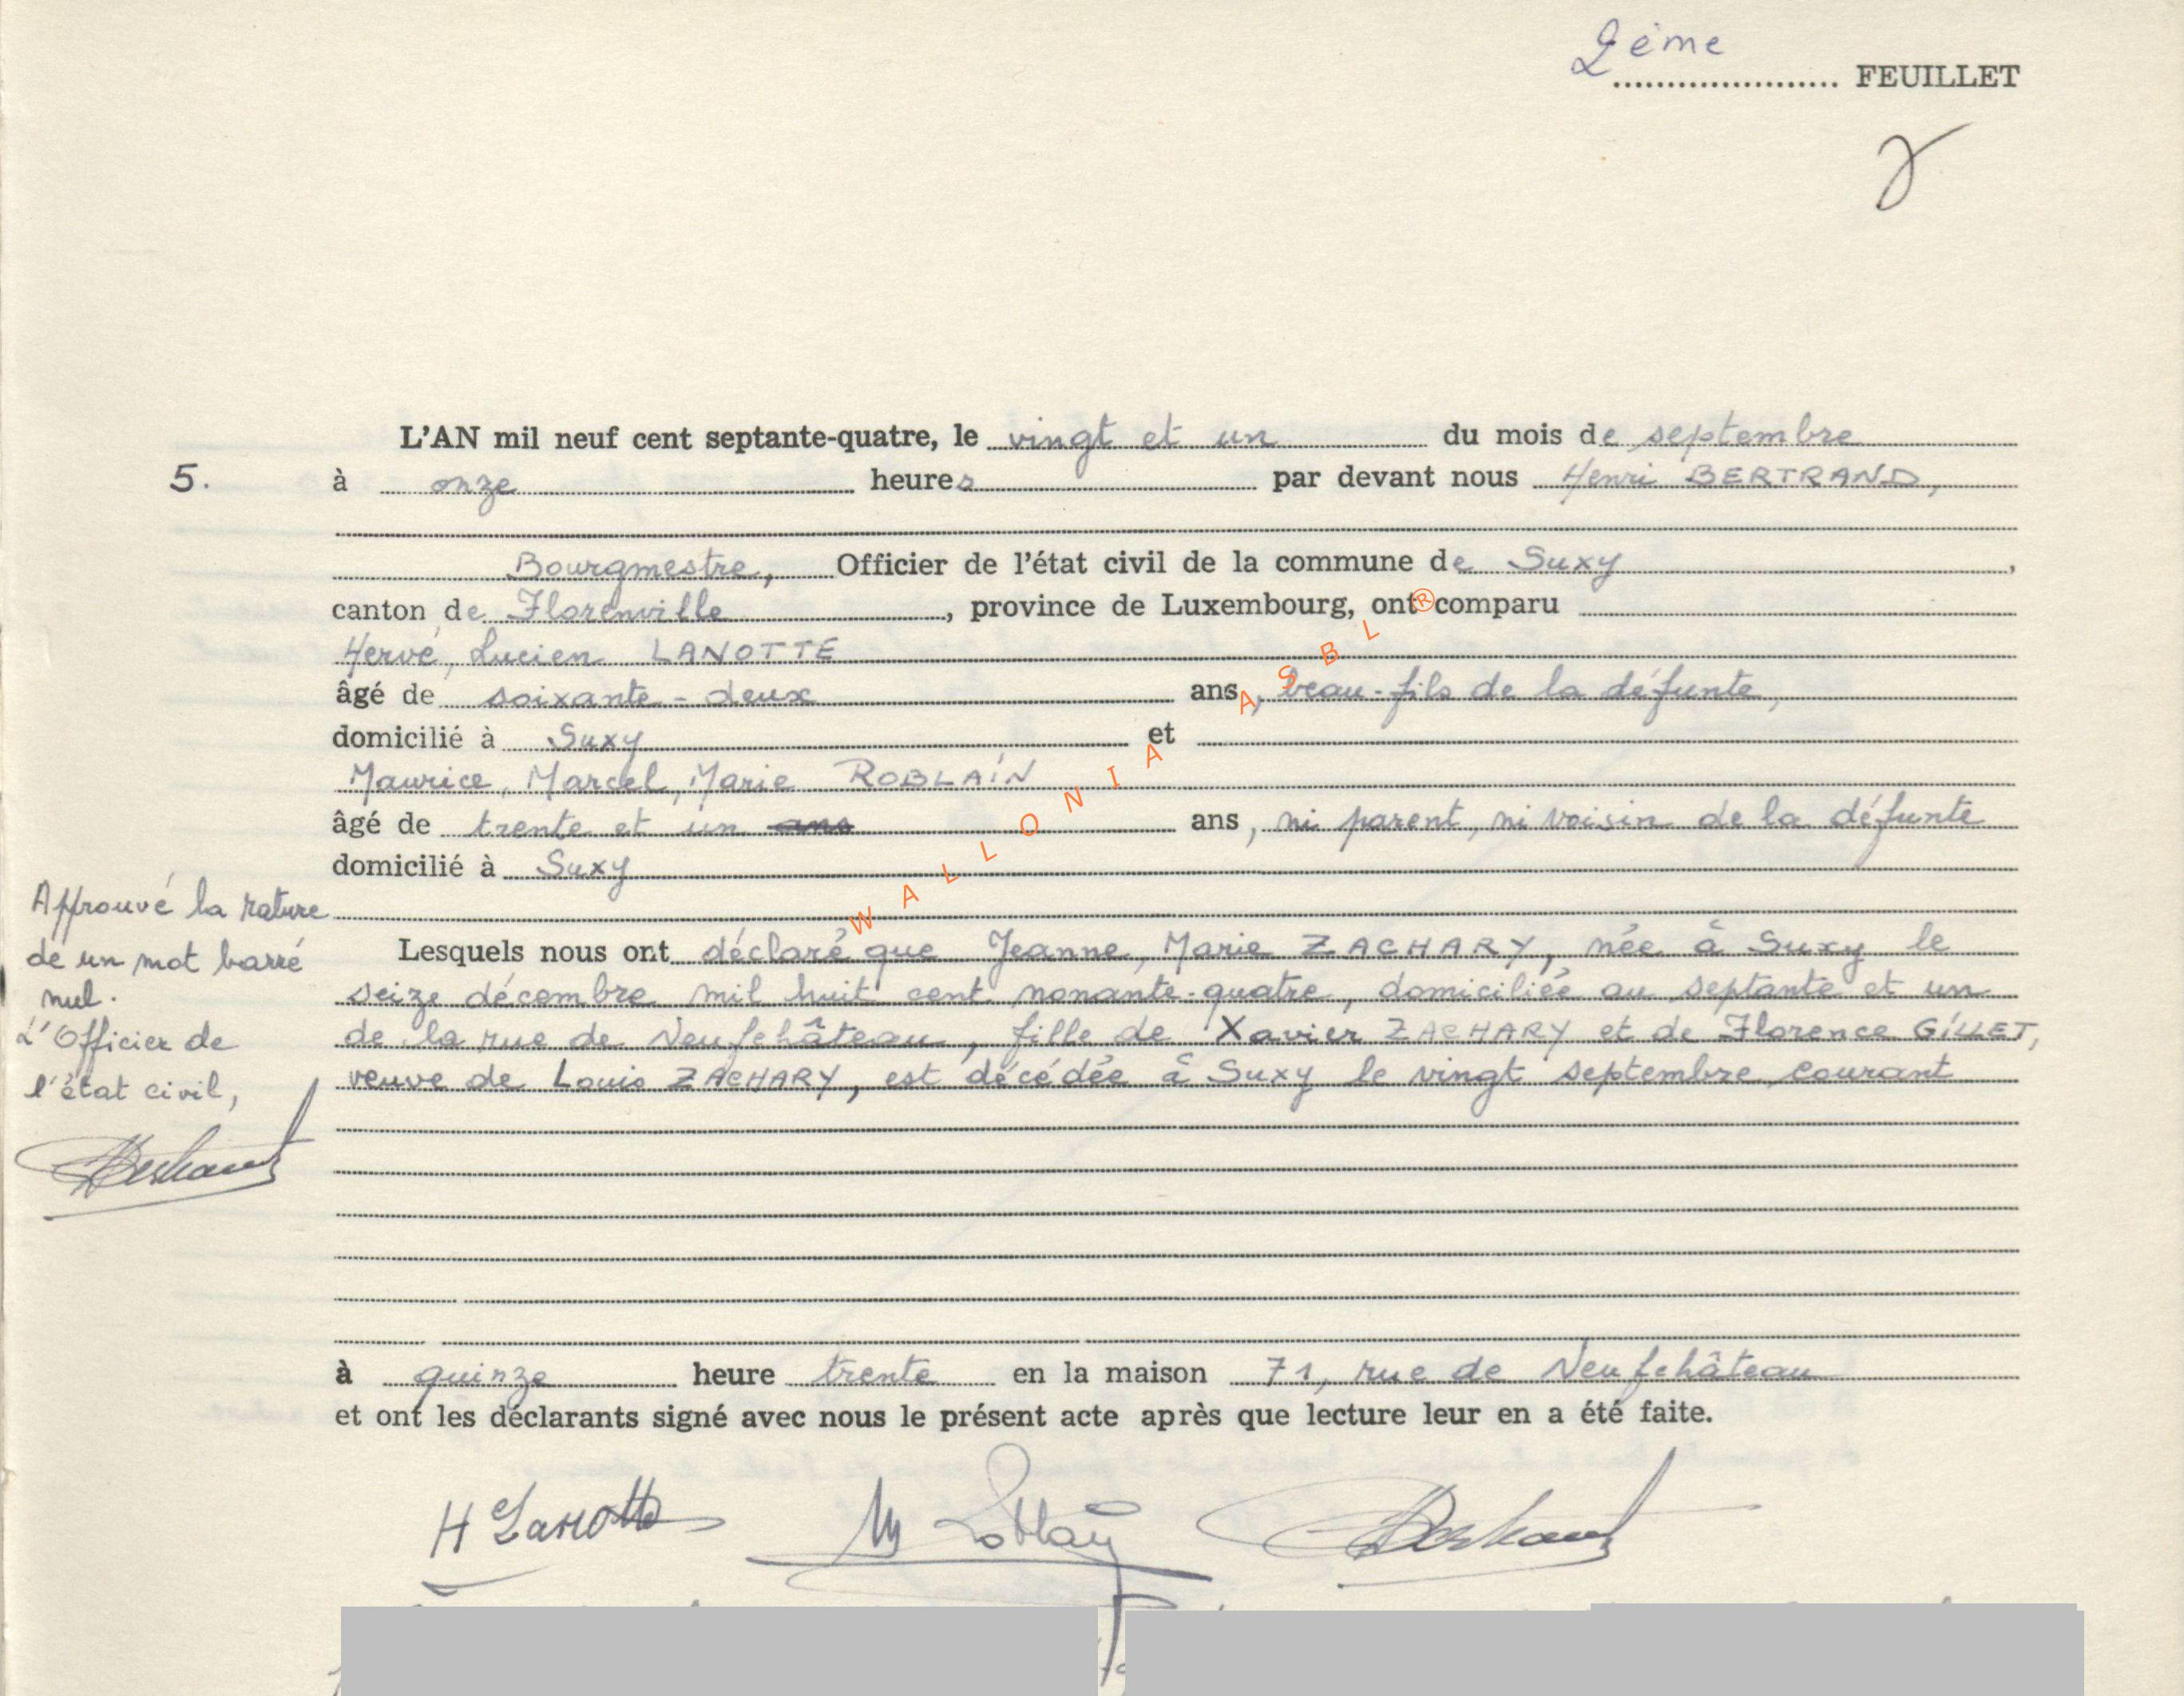 2ème FEUILLET
L'AN mil neuf cent septante-quatre, le vingt et un du mois de septembre
5. à onze heures par devant nous Henri BERTRAND,
Bourgmestre, Officier de l'état civil de la commune de Suxy,
canton de Florenville, province de Luxembourg, ont comparu
Hervé, Lucien LANOTTE
âgé de soixante-deux ans, beau-fils de la défunte,
domicilié à Suxy et
Maurice, Marcel, Marie ROBLAIN
âgé de trente et un ans ans, ni parent, ni voisin de la défunte
domicilié à Suxy
Approuvé la rature
de un mot barré
nul.
L'Officier de
l'état civil,
Lesquels nous ont déclaré que Jeanne, Marie ZACHARY, née à Suxy le
seize décembre mil huit cent nonante-quatre, domiciliée au septante et un
de la rue de Neufchâteau, fille de Xavier ZACHARY et de Florence GILLET,
veuve de Louis ZACHARY, est décédée à Suxy le vingt septembre courant
à quinze heure trente en la maison 71, rue de Neufchâteau
et ont les déclarants signé avec nous le présent acte après que lecture leur en a été faite.
H Lanotte
WALLONIA ASBL ®